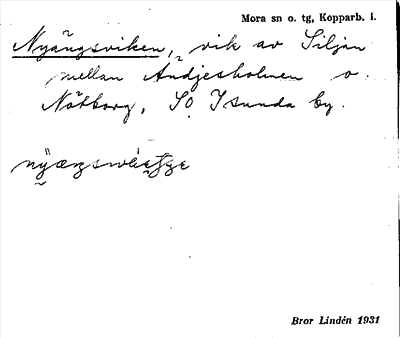 Mora sn o. tg, Kopparb. l.
Nyängsviken, vik av Siljan
mellan Andjesholmen o.
Nötborg, SO Isunda by.
Bror Lindén 1931